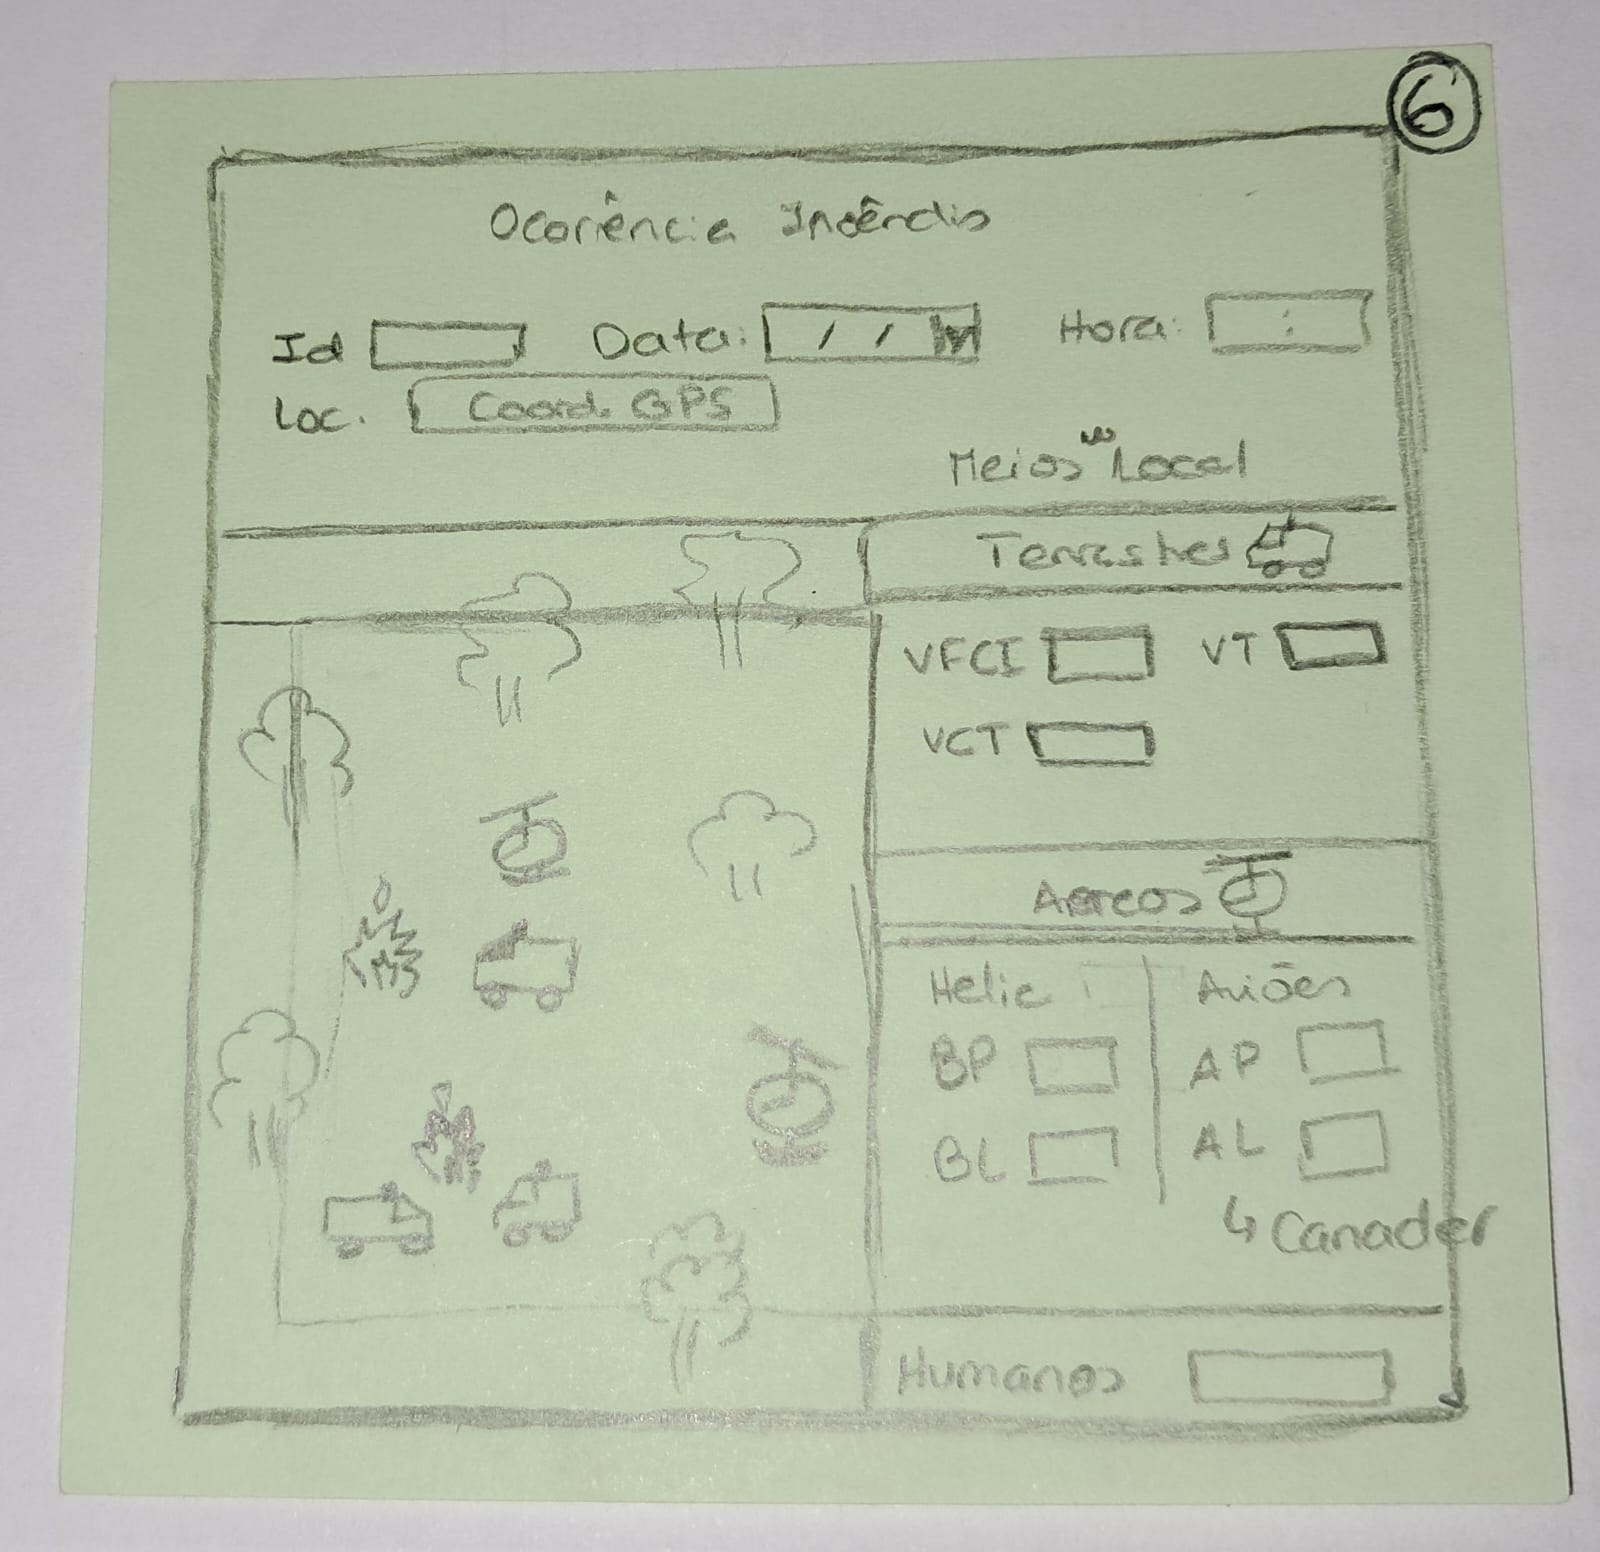 6
Ocorrência Incêndio
Id Data: / / Hora: :
Loc. Coord. GPS
Meios no Local
Terrestres
VFCI VT
VCT
Aéreos
Helic Aviões
BP AP
BL AL
↳ Canader
Humanos